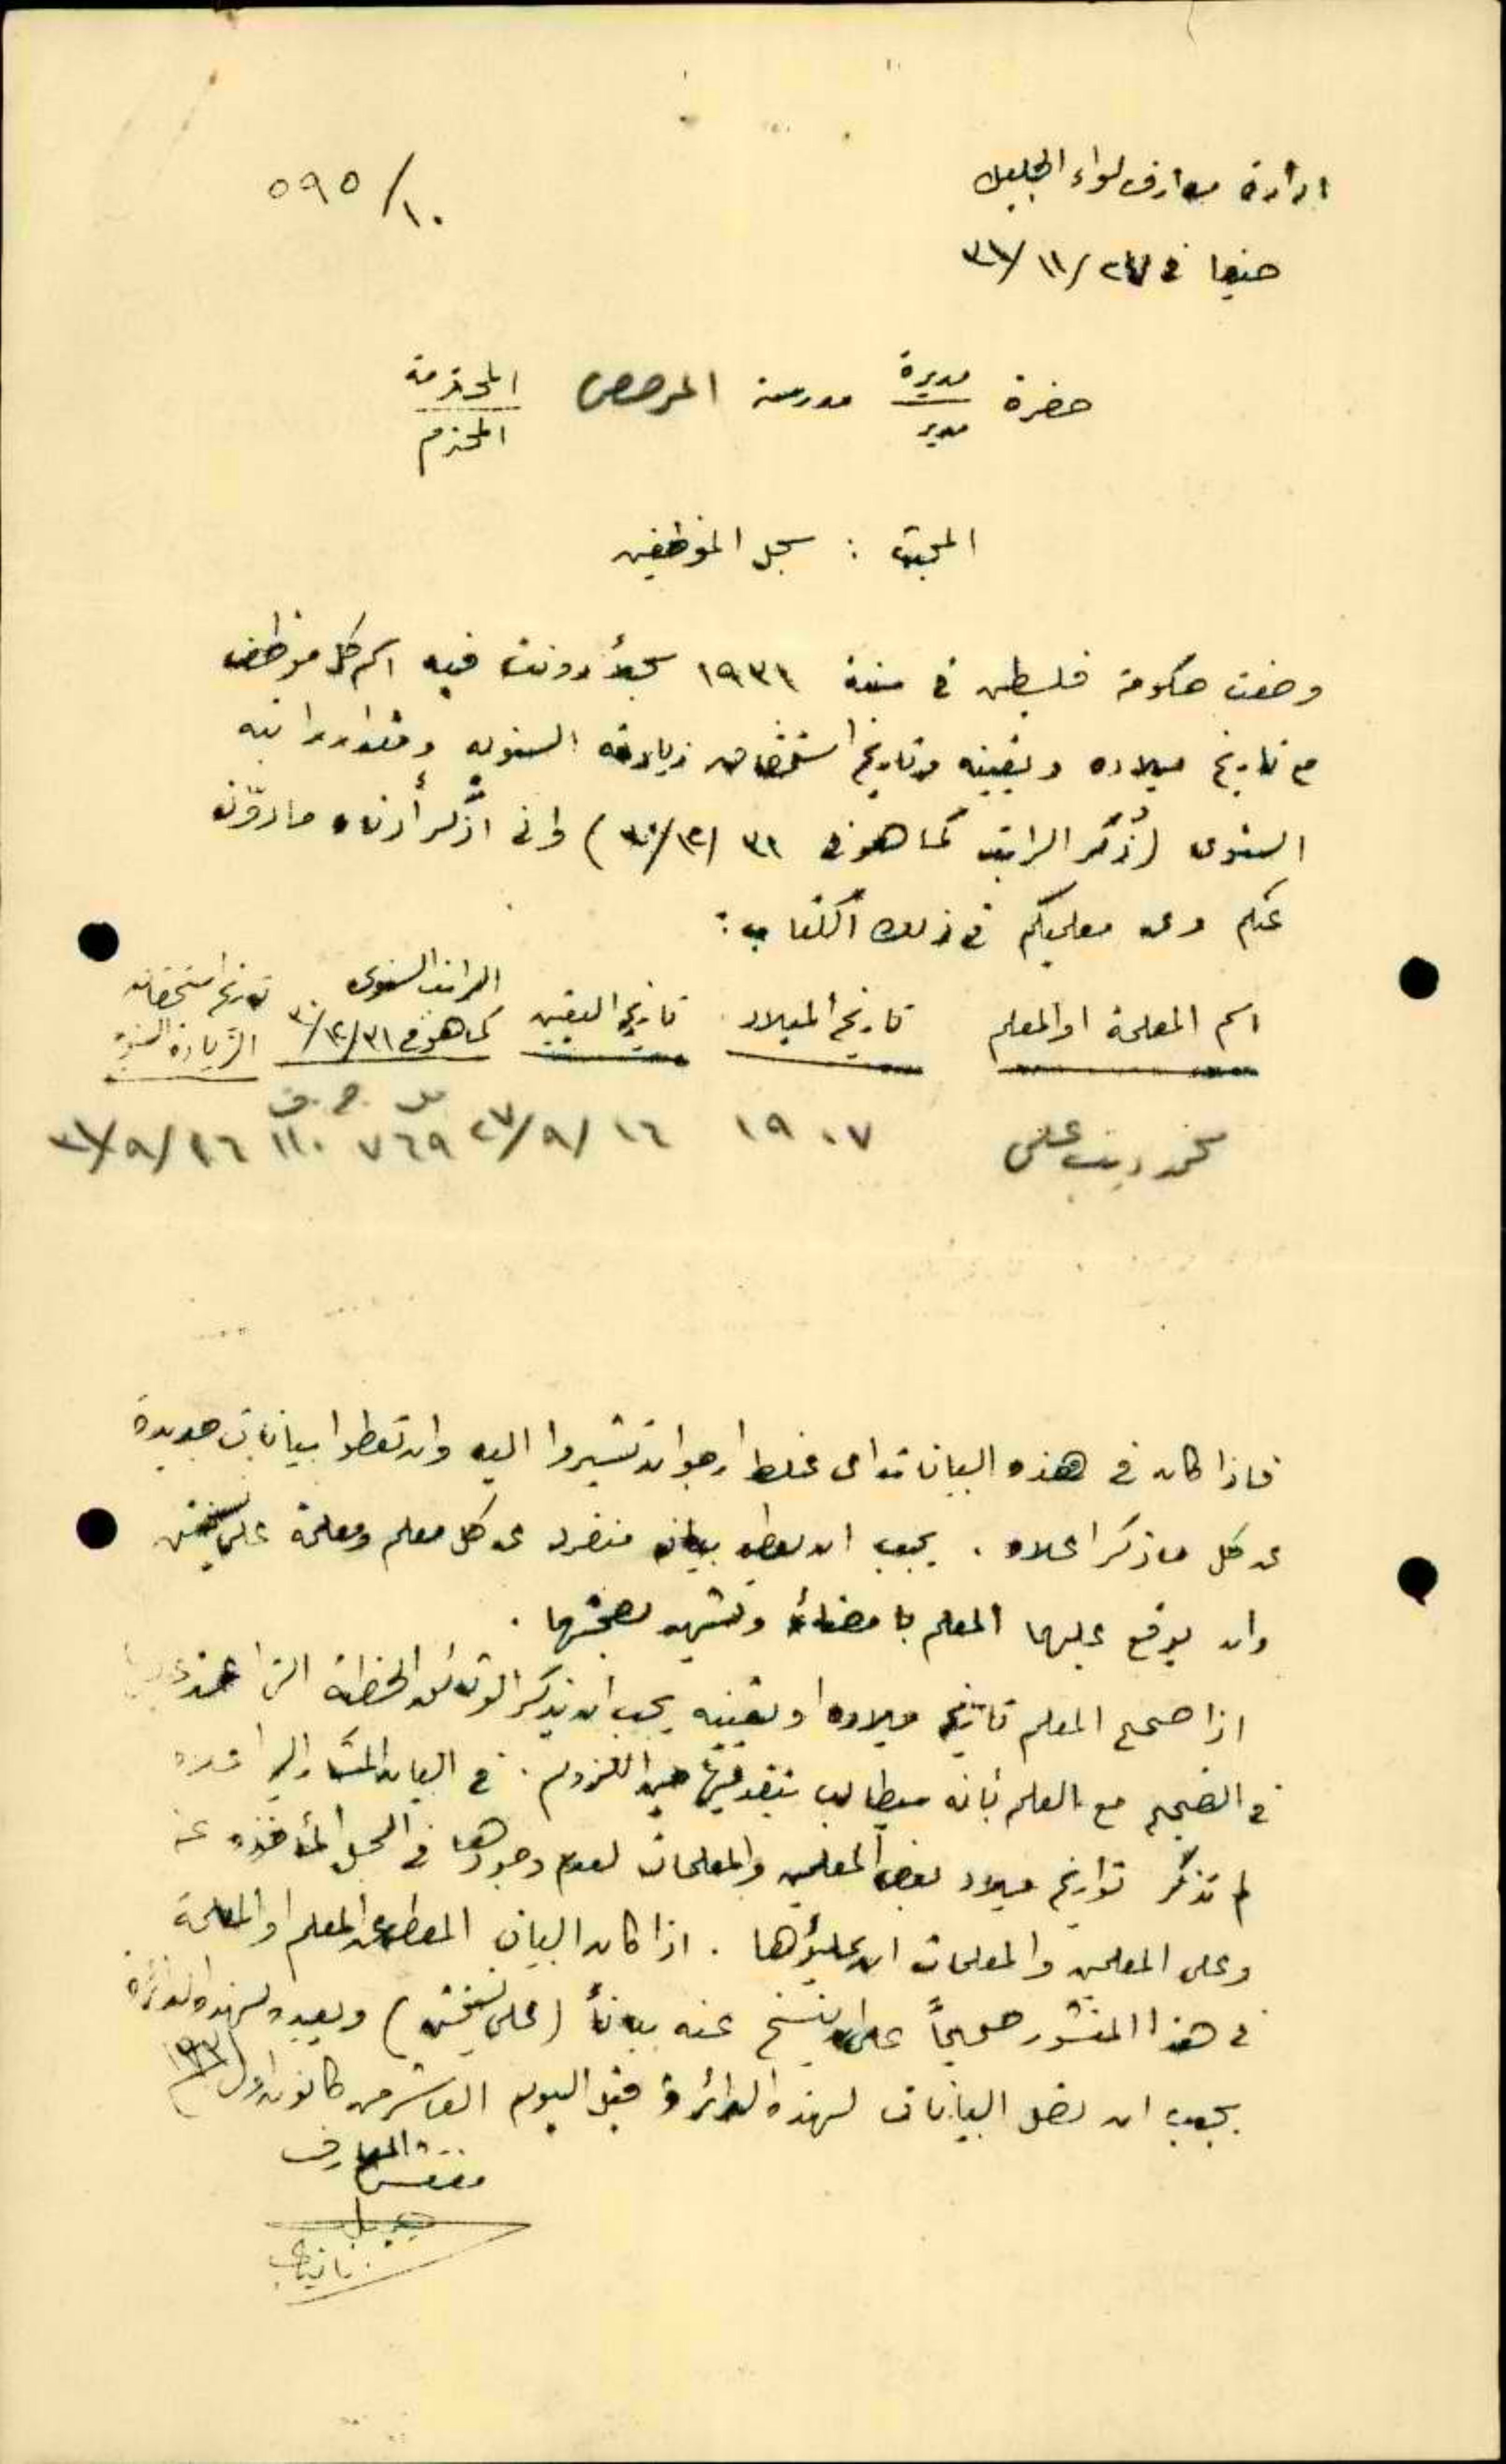 ادارة معارف لواء الجليل
٥٩٥/١٠
حيفا في ٢٧/١١/٣١
حضرة مديرة مدرسة المحترمة
مدير المحترم
المبحث : سجل الموظفين
وضعت حكومة فلسطين في سنة ١٩٣١ سجلاً دونت فيه اسم كل موظف
مع تاريخ ميلاده وتعيينه وتاريخ استحقاق زيادته السنويه ومقدار راتبه
السنوى (ذُكر الراتب كما هو في ٣١/١٢/٣٠) وانى اذكر أدناه ما دوّن
عنكم وعن معلميكم في ذلك الكتاب :
اسم المعلمة او المعلم تاريخ الميلاد تاريخ التعيين الراتب السنوى كما هو في ٣١/١٢/٣٠ تاريخ استحقاق الزيادة السنوية
مل ج. ف
محمد ديب علي ١٩٠٧ ١٦/٩/٢٧ ٧٦٩ ١١٠ ١٦/٩/٣١
فاذا كان في هذه البيانات اى غلط ارجو ان تشيروا اليه وان تعطوا بيانات جديدة
عن كل ما ذكر اعلاه . يجب ان يعطى بيان منفرد عن كل معلم ومعلمة على نسختين
وان يوقع عليها المعلم بامضائه وتشهد بصحتها .
اذا صحح المعلم تاريخ ميلاده او تعيينه يجب ان يذكر الوثائق الخطية التى اعتمد عليها
في التصحيح مع العلم بأنه سيطالب بتقديمها حين اللزوم . في البيان المشار اليه اعلاه
لم تذكر تواريخ ميلاد بعض المعلمين والمعلمات لعدم وجودها في السجل المأخوذه عنه
وعلى المعلمين والمعلمات ان يملؤها . اذا كان البيان المعطى عن المعلم او المعلمة
في هذا المنشور صحيحاً عليه ان ينسخ عنه بياناً (على نسختين) ويعيده لهذه الدائرة
يجب ان تصل البيانات لهذه الدائرة قبل اليوم العاشر من كانون اول ١٩٣١
مفتش المعارف